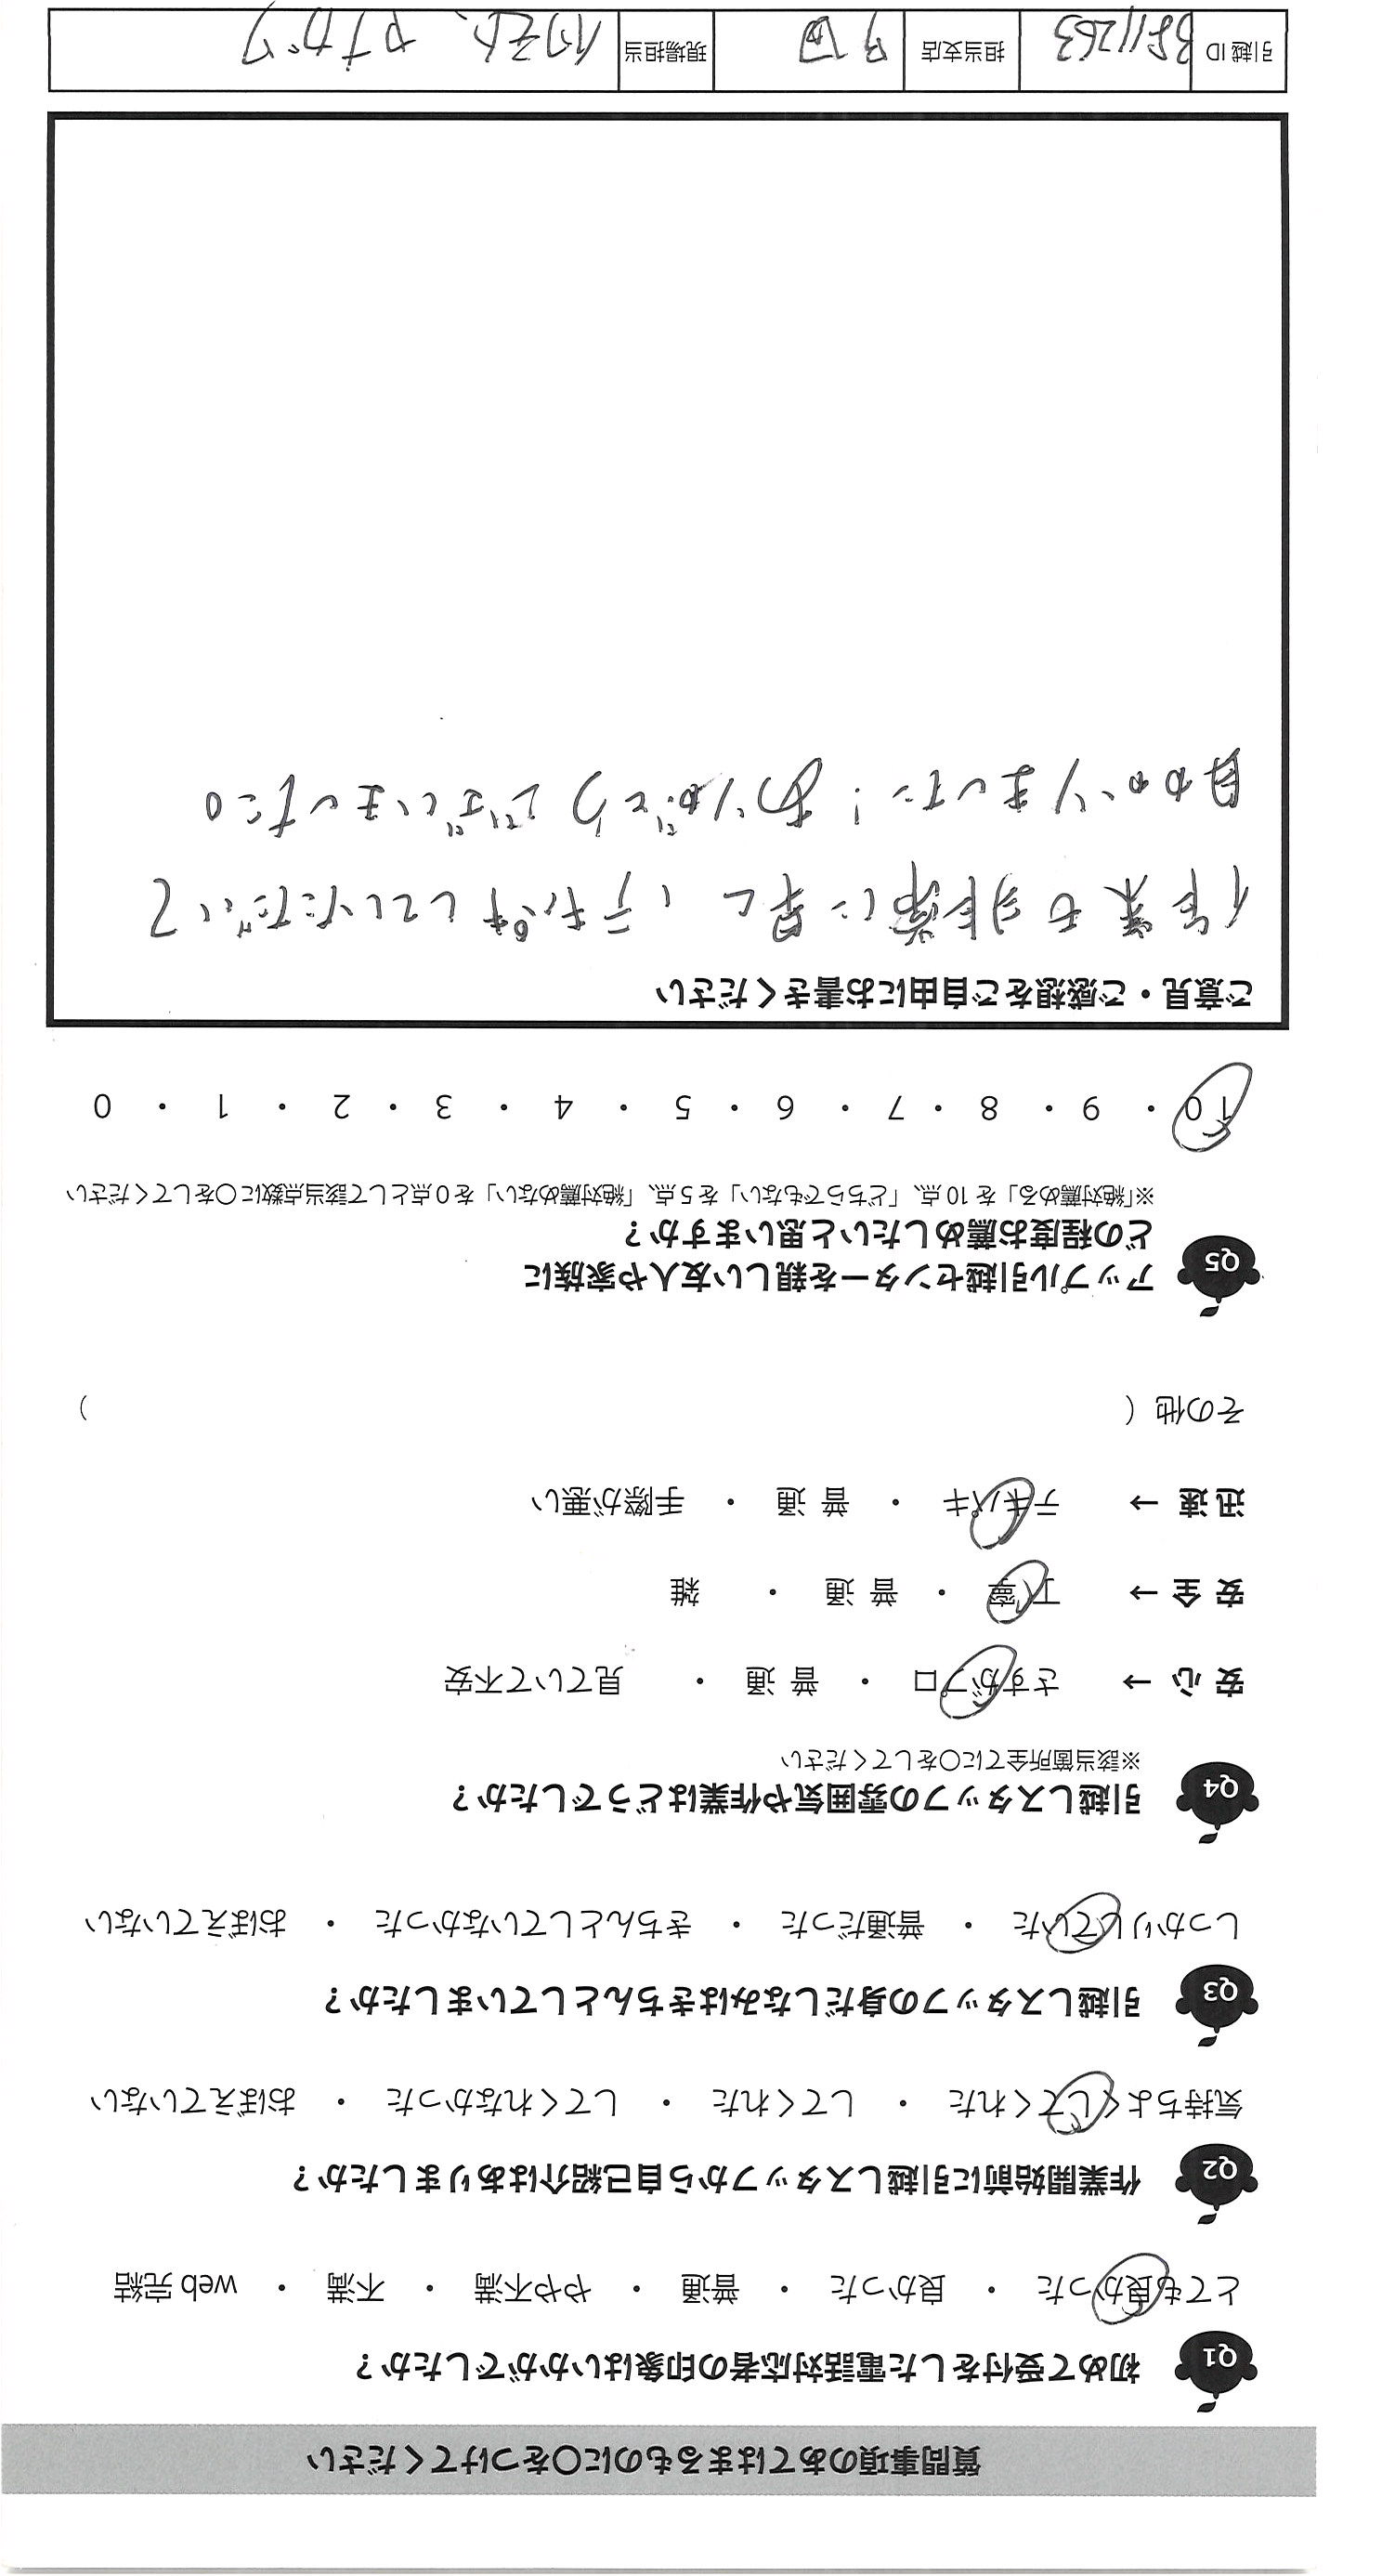 質問事項のあてはまるものに〇をつけてください
Q1 初めて受付をした電話対応者の印象はいかがでしたか？
とても良かった ・ 良かった ・ 普通 ・ やや不満 ・ 不満 ・ web 完結
Q2 作業開始前に引越しスタッフから自己紹介はありましたか？
気持ちよくしてくれた ・ してくれた ・ してくれなかった ・ おぼえていない
Q3 引越しスタッフの身だしなみはきちんとしていましたか？
しっかりしていた ・ 普通だった ・ きちんとしていなかった ・ おぼえていない
Q4 引越しスタッフの雰囲気や作業はどうでしたか？
※該当箇所全てに〇をしてください
安 心 → さすがプロ ・ 普 通 ・ 見ていて不安
安 全 → 丁寧 ・ 普 通 ・ 雑
迅 速 → テキパキ ・ 普 通 ・ 手際が悪い
その他（ ）
Q5 アップル引越センターを親しい友人や家族に
どの程度お薦めしたいと思いますか？
※「絶対薦める」を 10 点、「どちらでもない」を 5 点、「絶対薦めない」を 0 点として該当点数に〇をしてください
10 ・ 9 ・ 8 ・ 7 ・ 6 ・ 5 ・ 4 ・ 3 ・ 2 ・ 1 ・ 0
ご意見・ご感想をご自由にお書きください
作業も非常に早く、テキパキしていただいて
助かりました！ありがとうございました。
引越 ID 担当支店 現場担当